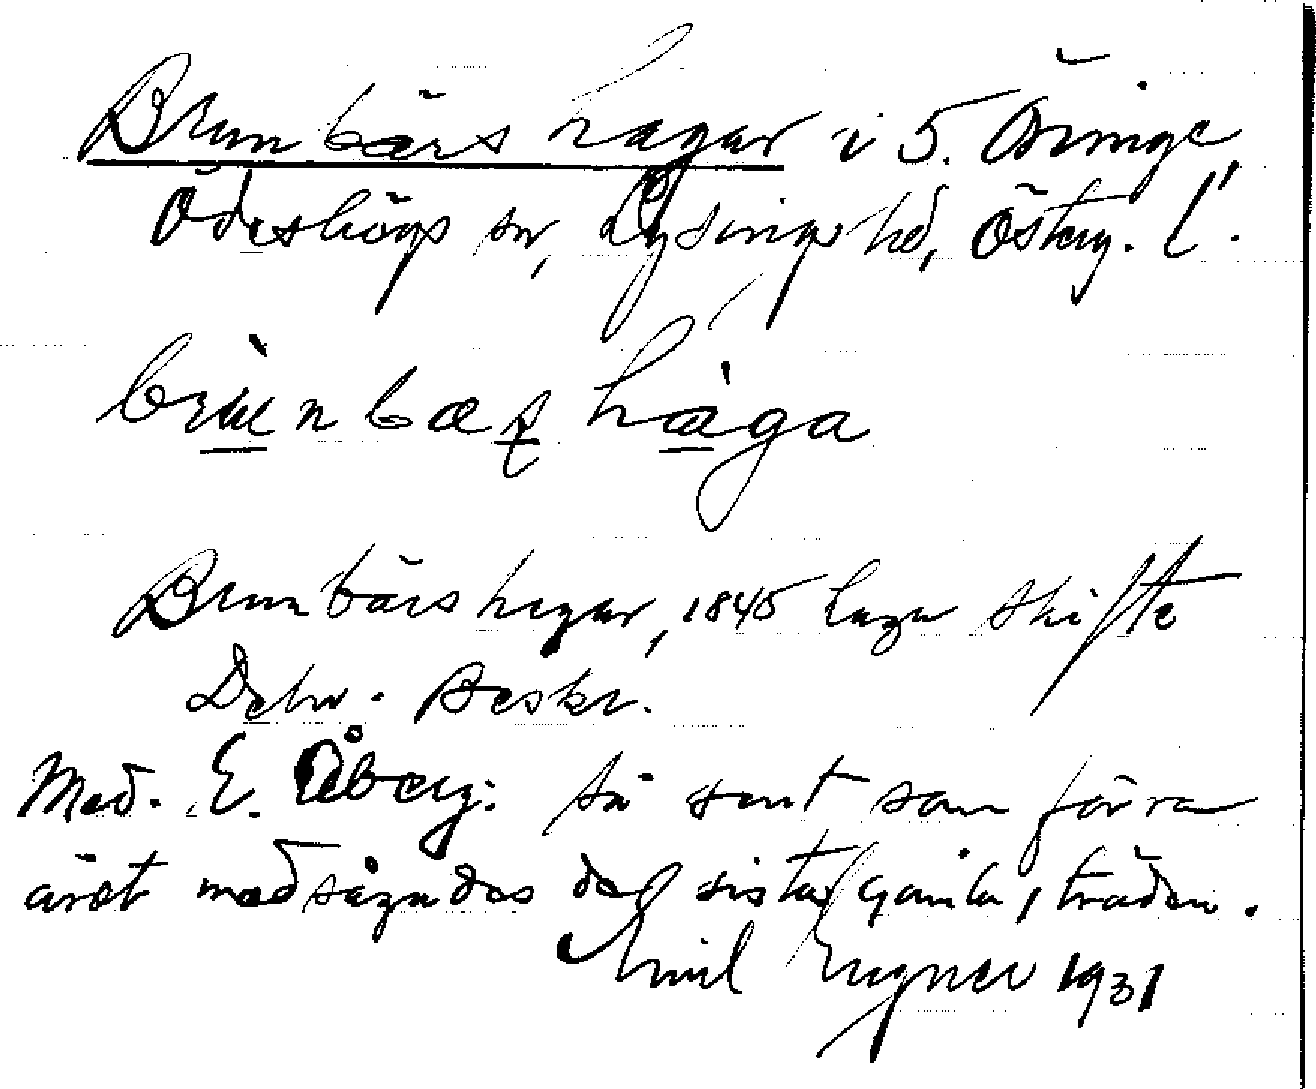 Brunbärs hagar i S. Öninge,
Ödeshögs sn, Lysings hd, Österg. l.
bru̱nbæʂ ha̱ga
Brunbärshagar, 1845 laga skifte
Deln. Beskr.
Med. E. Åberg: så sent som förra
året nedsågades de sista gamla träden.
Emil 1931